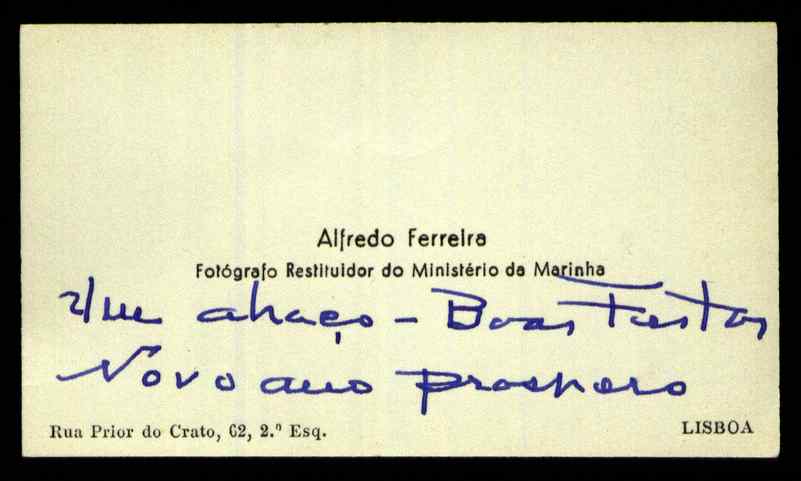 Alfredo Ferreira
Fotógrafo Restituidor do Ministério da Marinha
Um abraço - Boas Festas
Novo ano prospero
Rua Prior do Crato, 62, 2.º Esq.
LISBOA